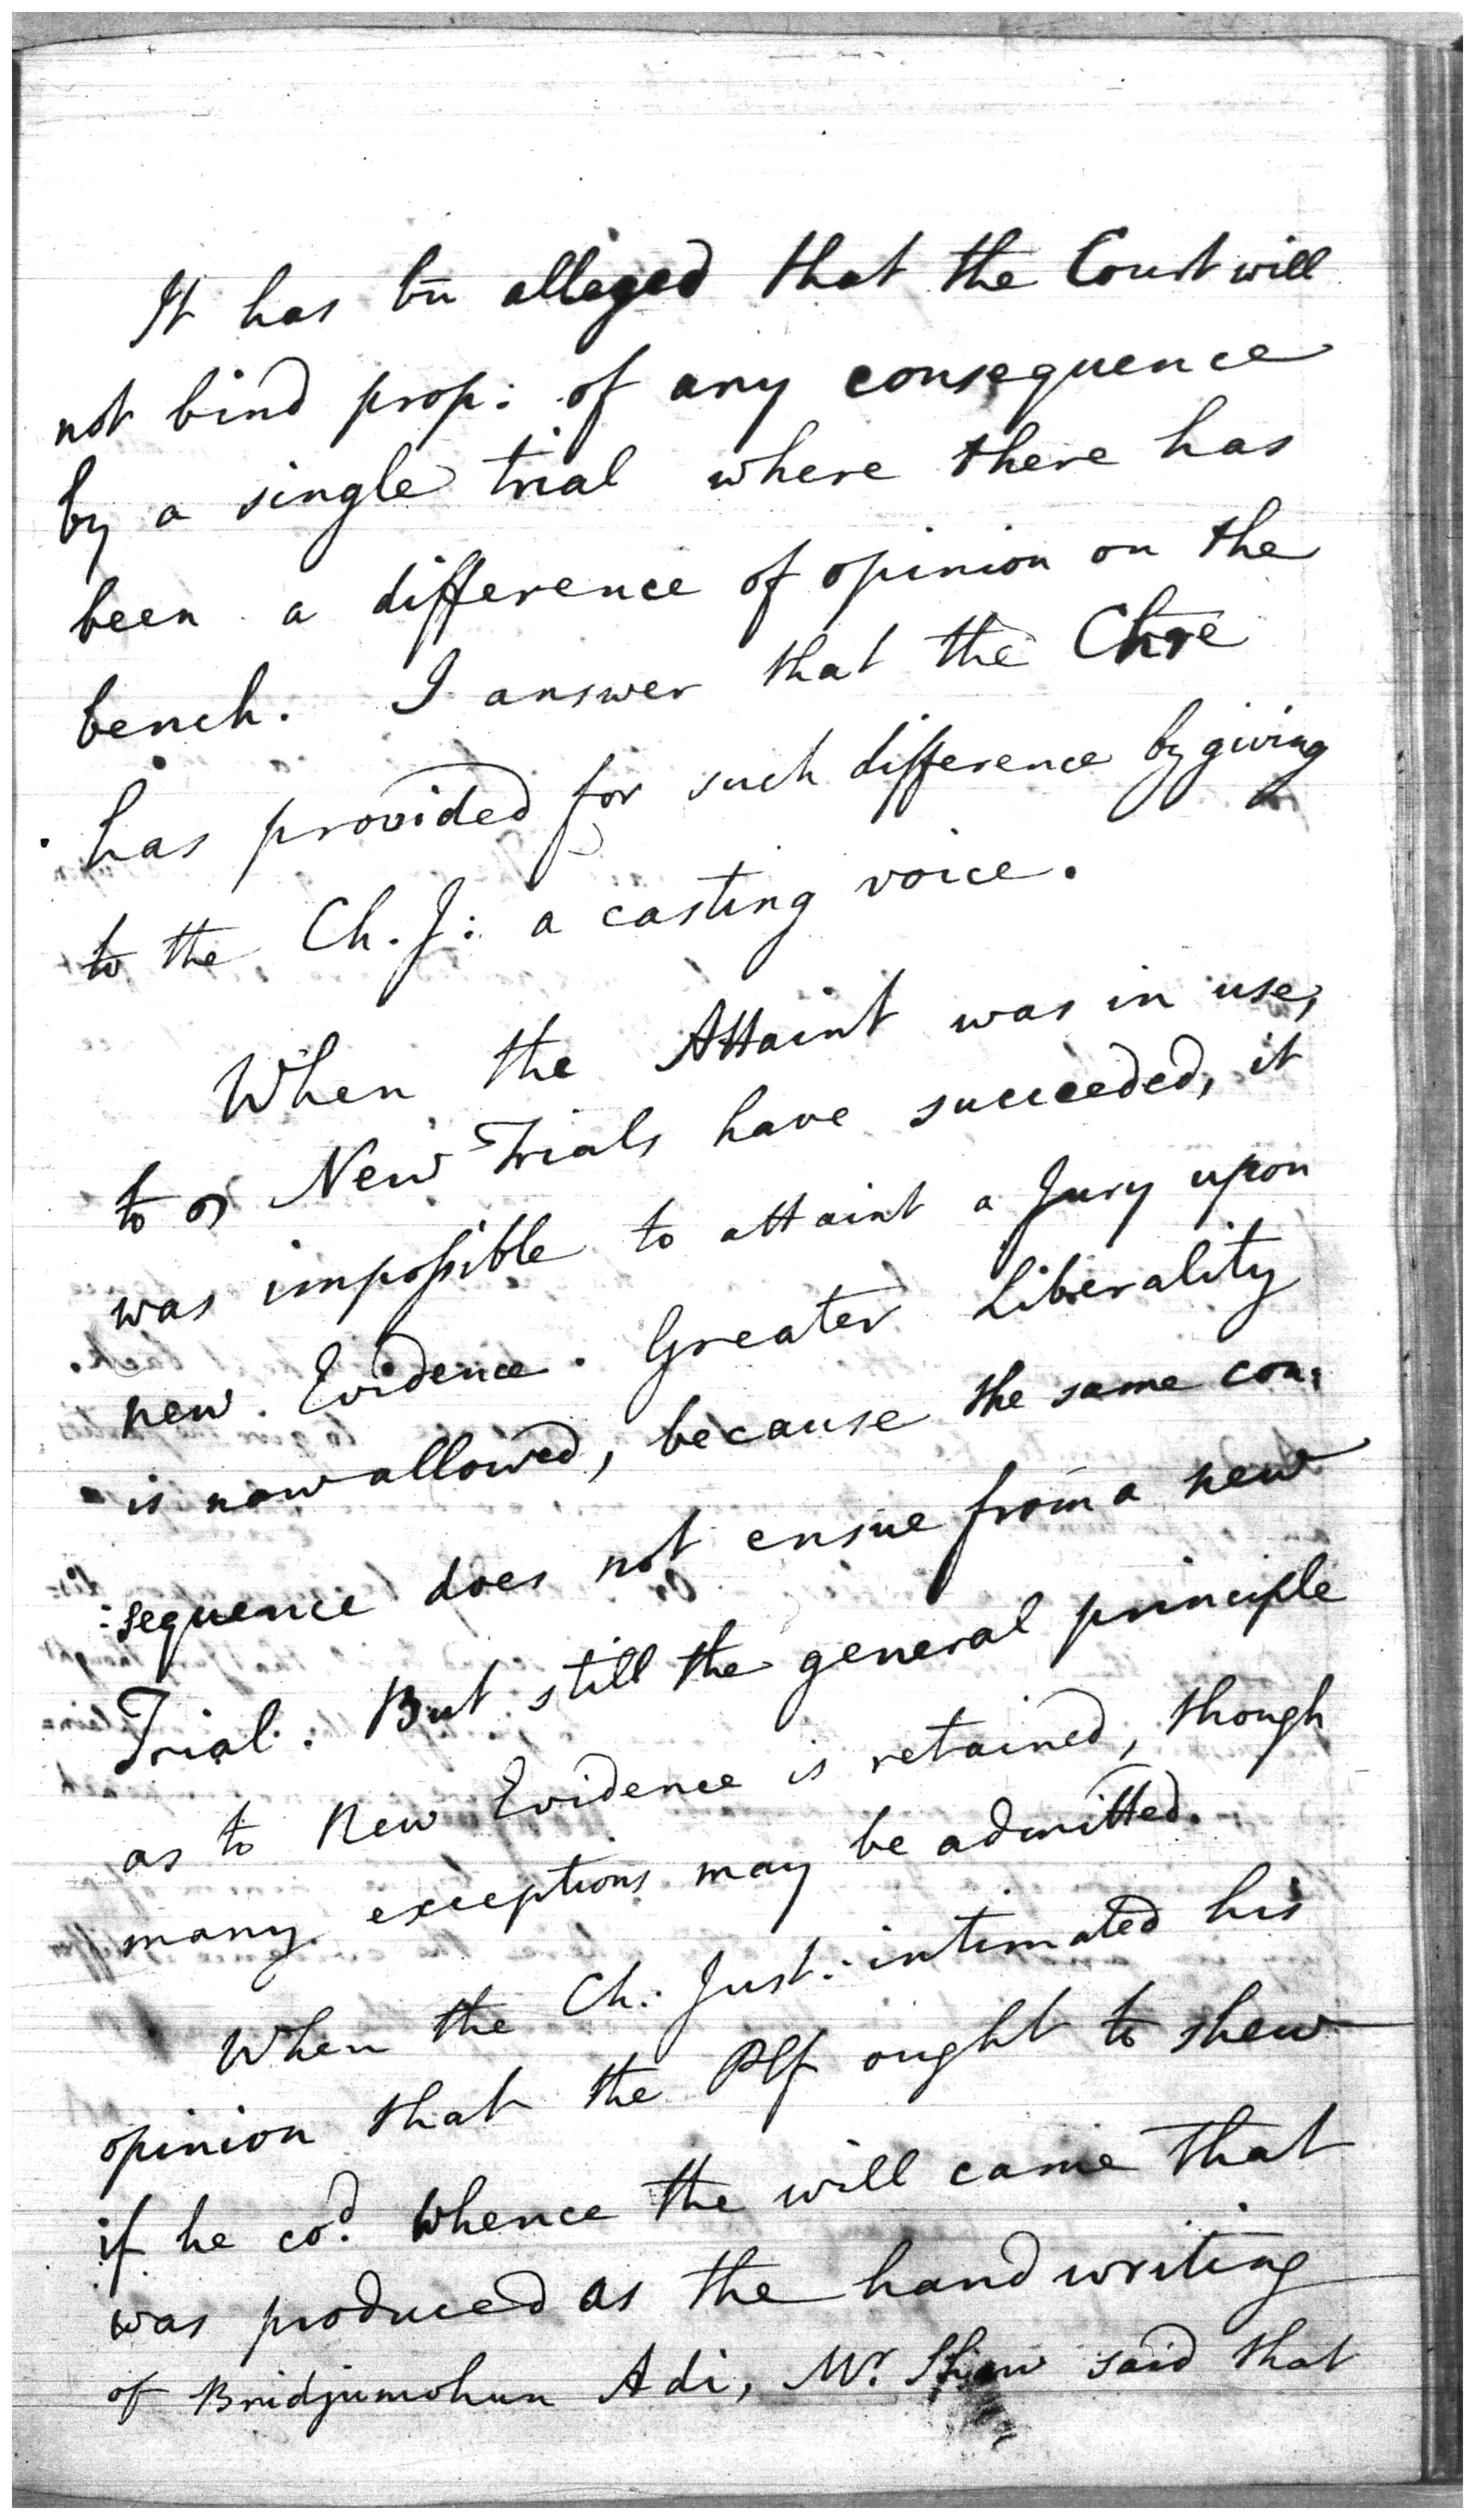 It has bn alleged that the Court will
not bind prop: of any consequence
by a single trial where there has
been a difference of opinion on the
bench. I answer that the Chre
has provided for such difference by giving
to the Ch. J: a casting voice.
When the Attaint was in use,
to New Trials have succeeded, it
was impossible to attaint a Jury upon
new Evidence. Greater Liberality
is now allowed, because the same con:
:sequence does not ensue from a new
Trial. But still the general principle
as to New Evidence is retained, though
many exceptions may be admitted.
When the Ch: Just: intimated his
opinion that the Plf ought to shew
if he cod. whence the will came that
was produced as the hand writing
of Bridjumohun Adi, Mr. Shaw said that